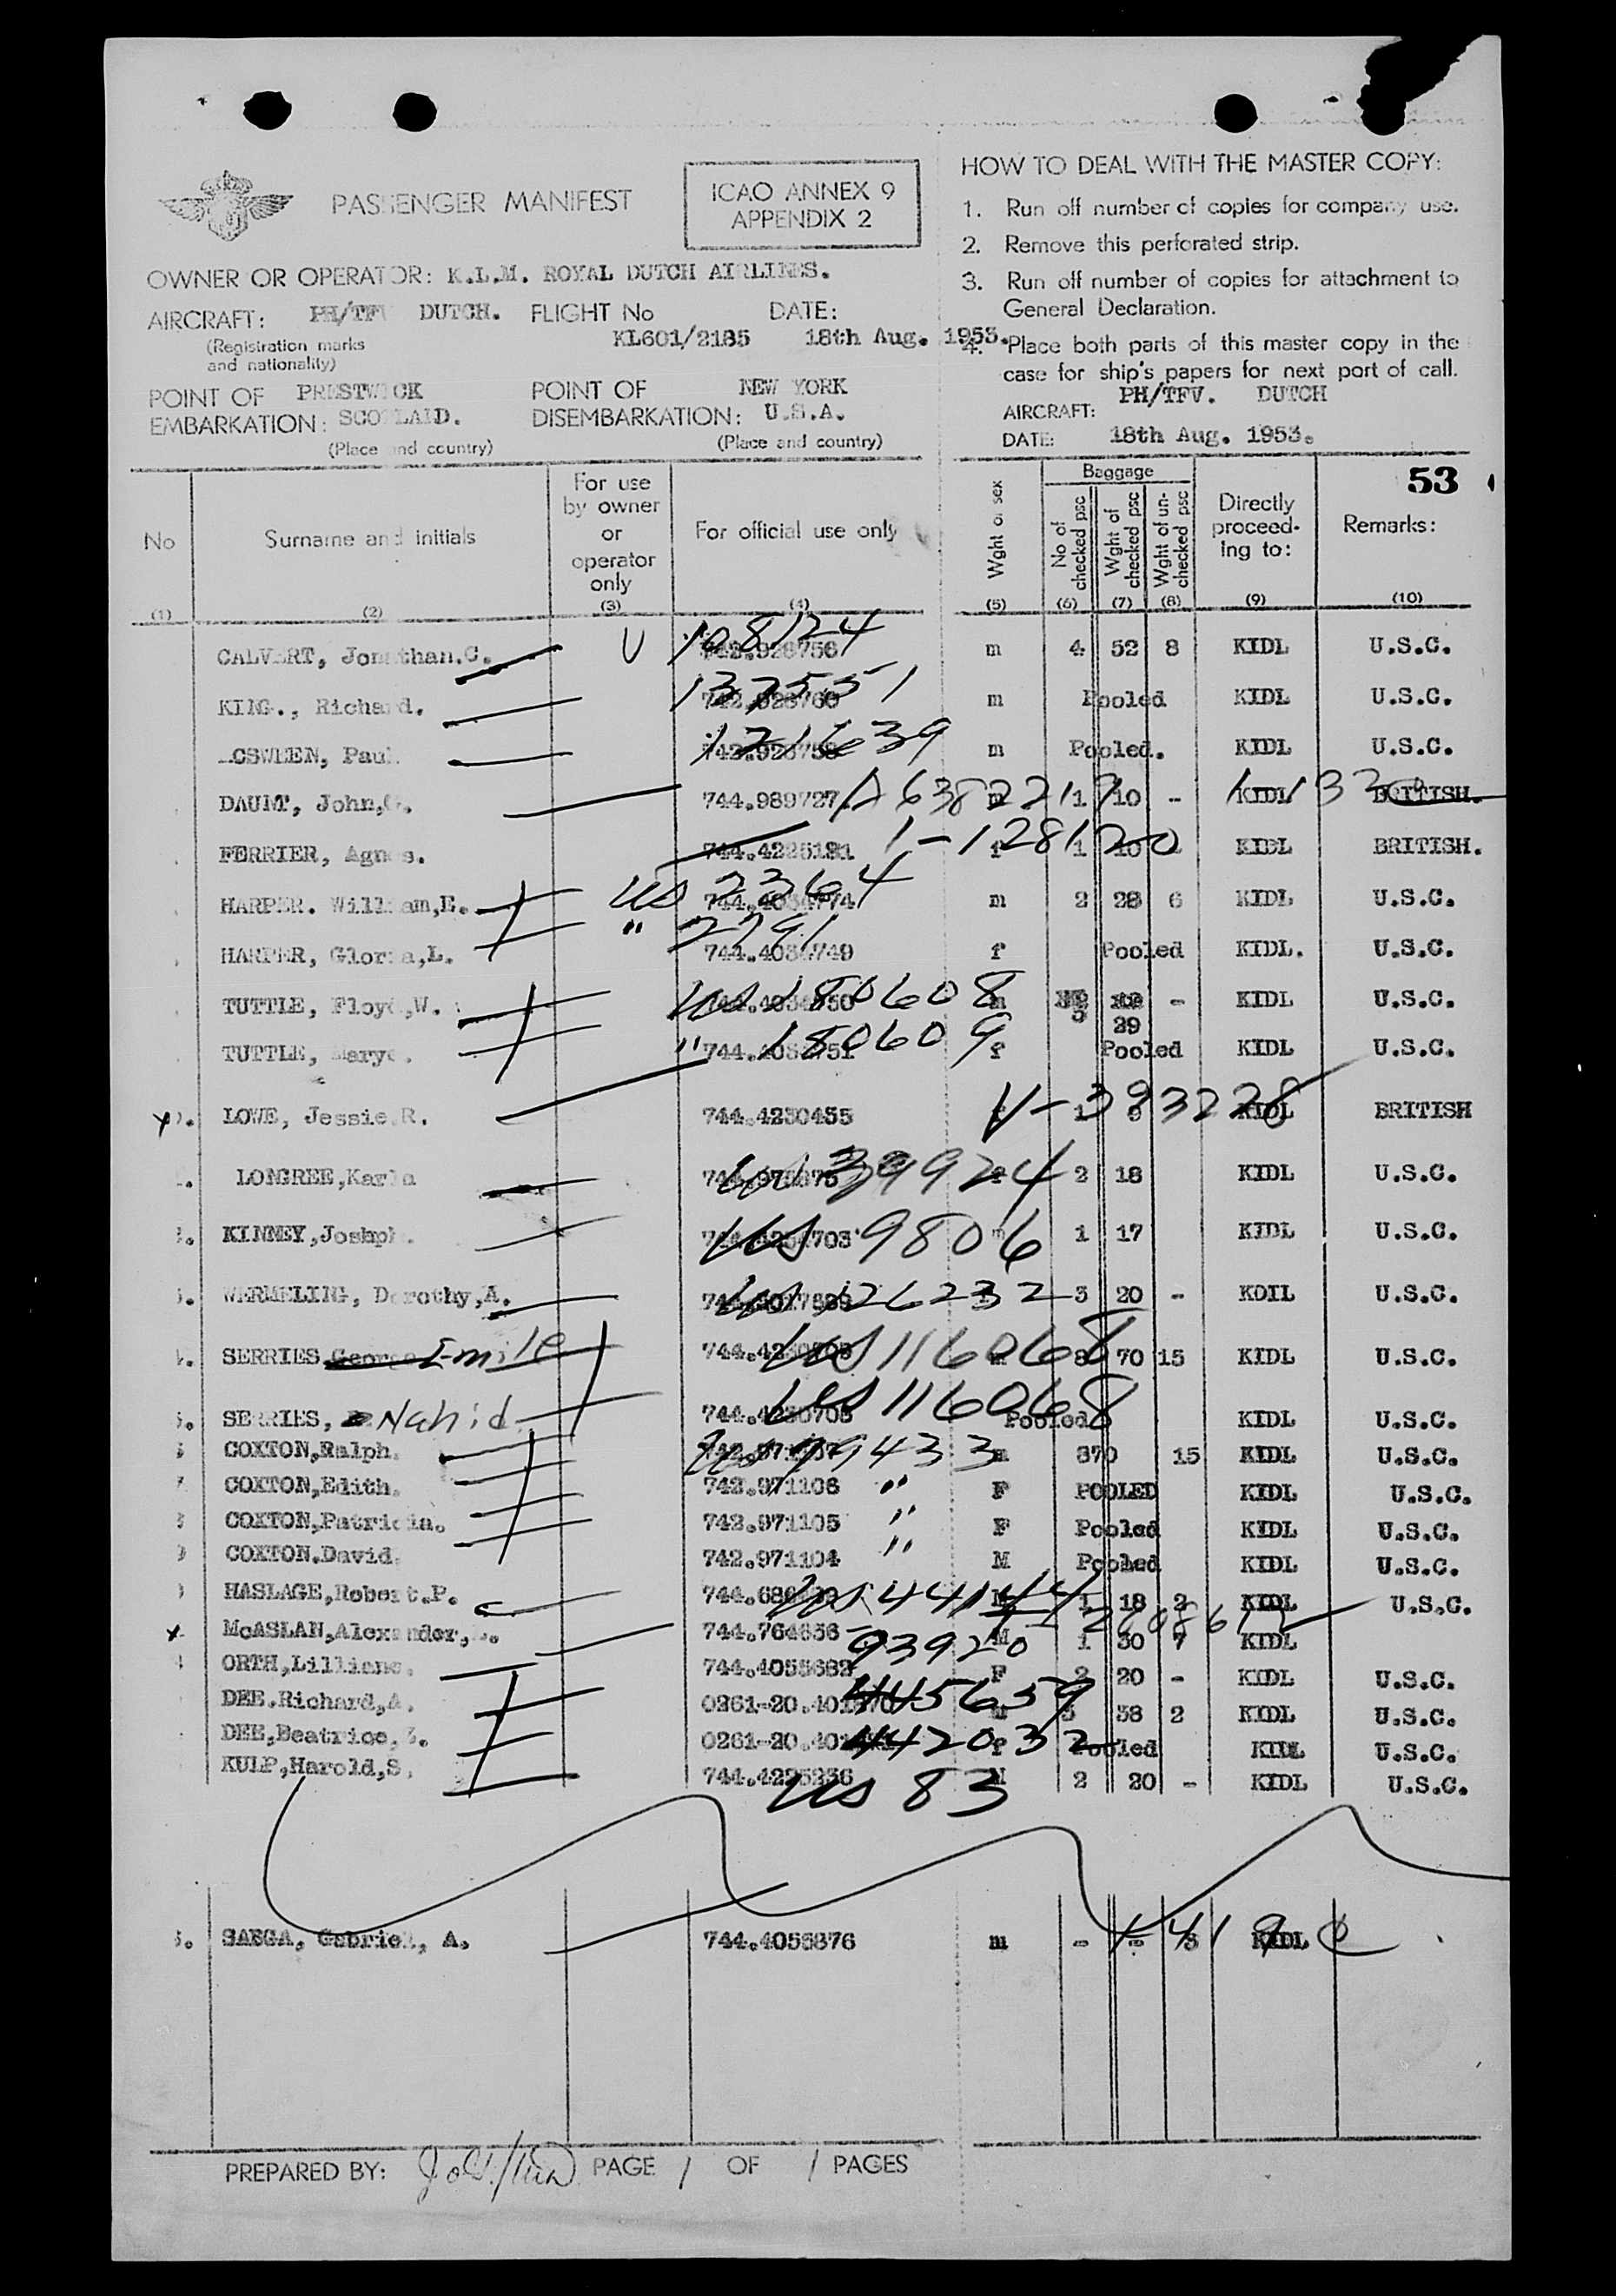 PASSENGER MANIFEST
ICAO ANNEX 9
APPENDIX 2
OWNER OR OPERATOR: K.L.M. ROYAL DUTCH AIRLINES.
AIRCRAFT: PH/TFV DUTCH. FLIGHT No DATE:
(Registration marks and nationality) KL601/2185 18th Aug. 1953.
POINT OF EMBARKATION: PRESTWICK SCOTLAND. POINT OF DISEMBARKATION: NEW YORK U.S.A.
(Place and country) (Place and country)
HOW TO DEAL WITH THE MASTER COPY:
1. Run off number of copies for company use.
2. Remove this perforated strip.
3. Run off number of copies for attachment to
General Declaration.
4. Place both parts of this master copy in the
case for ship's papers for next port of call.
AIRCRAFT: PH/TFV. DUTCH
DATE: 18th Aug. 1953.
53
No Surname and initials For use by owner or operator only For official use only Wght or sex Baggage No of checked psc Wght of checked psc Wght of un-checked psc Directly proceed-ing to: Remarks:
(1) (2) (3) (4) (5) (6) (7) (8) (9) (10)
CALVERT, Jonathan.C. U 108124 m 4 52 8 KIDL U.S.C.
KING., Richard. 137551 m Pooled KIDL U.S.C.
Paul 121639 m Pooled. KIDL U.S.C.
DAUNT, John, 744.989727 A6382219 1 10 - KIDL BRITISH.
FERRIER, Agnes. 744.4225121 1-128120 f 1 10 - KIDL BRITISH.
HARPER. William,E. US 2364 m 2 28 6 KIDL U.S.C.
HARPER, Gloria,L. " 2791 744.4034749 f Pooled KIDL. U.S.C.
TUTTLE, Floyd,W. US 180608 m 3 29 - KIDL U.S.C.
TUTTLE, Marye. " 180609 744.4034751 f Pooled KIDL U.S.C.
LOWE, Jessie.R. 744.4230455 V-393228 1 9 KIDL BRITISH
LONGREE,Karla US 39924 2 18 KIDL U.S.C.
KINNEY,Joshph. US 9806 1 17 KIDL U.S.C.
WERMELING, Dorothy,A. US 126232 3 20 - KOIL U.S.C.
SERRIES George Emile US 116068 8 70 15 KIDL U.S.C.
SERRIES, Nahid 744.4230705 US 116068 Pooled KIDL U.S.C.
COXTON,Ralph. US 99433 m 870 15 KIDL U.S.C.
COXTON,Edith. 742.971106 " F POOLED KIDL U.S.C.
COXTON,Patricia. 742.971105 " F Pooled KIDL U.S.C.
COXTON.David. 742.971104 " M Pooled KIDL U.S.C.
HASLAGE,Robert.P. US 44144 1 18 2 KIDL U.S.C.
McASLAN,Alexander, 744.764656 M 1 30 7 KIDL
ORTH,Lilliane. 744.4055682 93920 F 2 20 - KIDL U.S.C.
DEE.Richard,A. 445659 3 58 2 KIDL U.S.C.
DEE,Beatrice, 442032 f Pooled KIDL U.S.C.
KULP,Harold,S. 744.4225236 US 83 M 2 20 - KIDL U.S.C.
SAEGA, Gabriel, A. 744.4055876 m - - 3 KIDL
PREPARED BY: PAGE 1 OF 1 PAGES